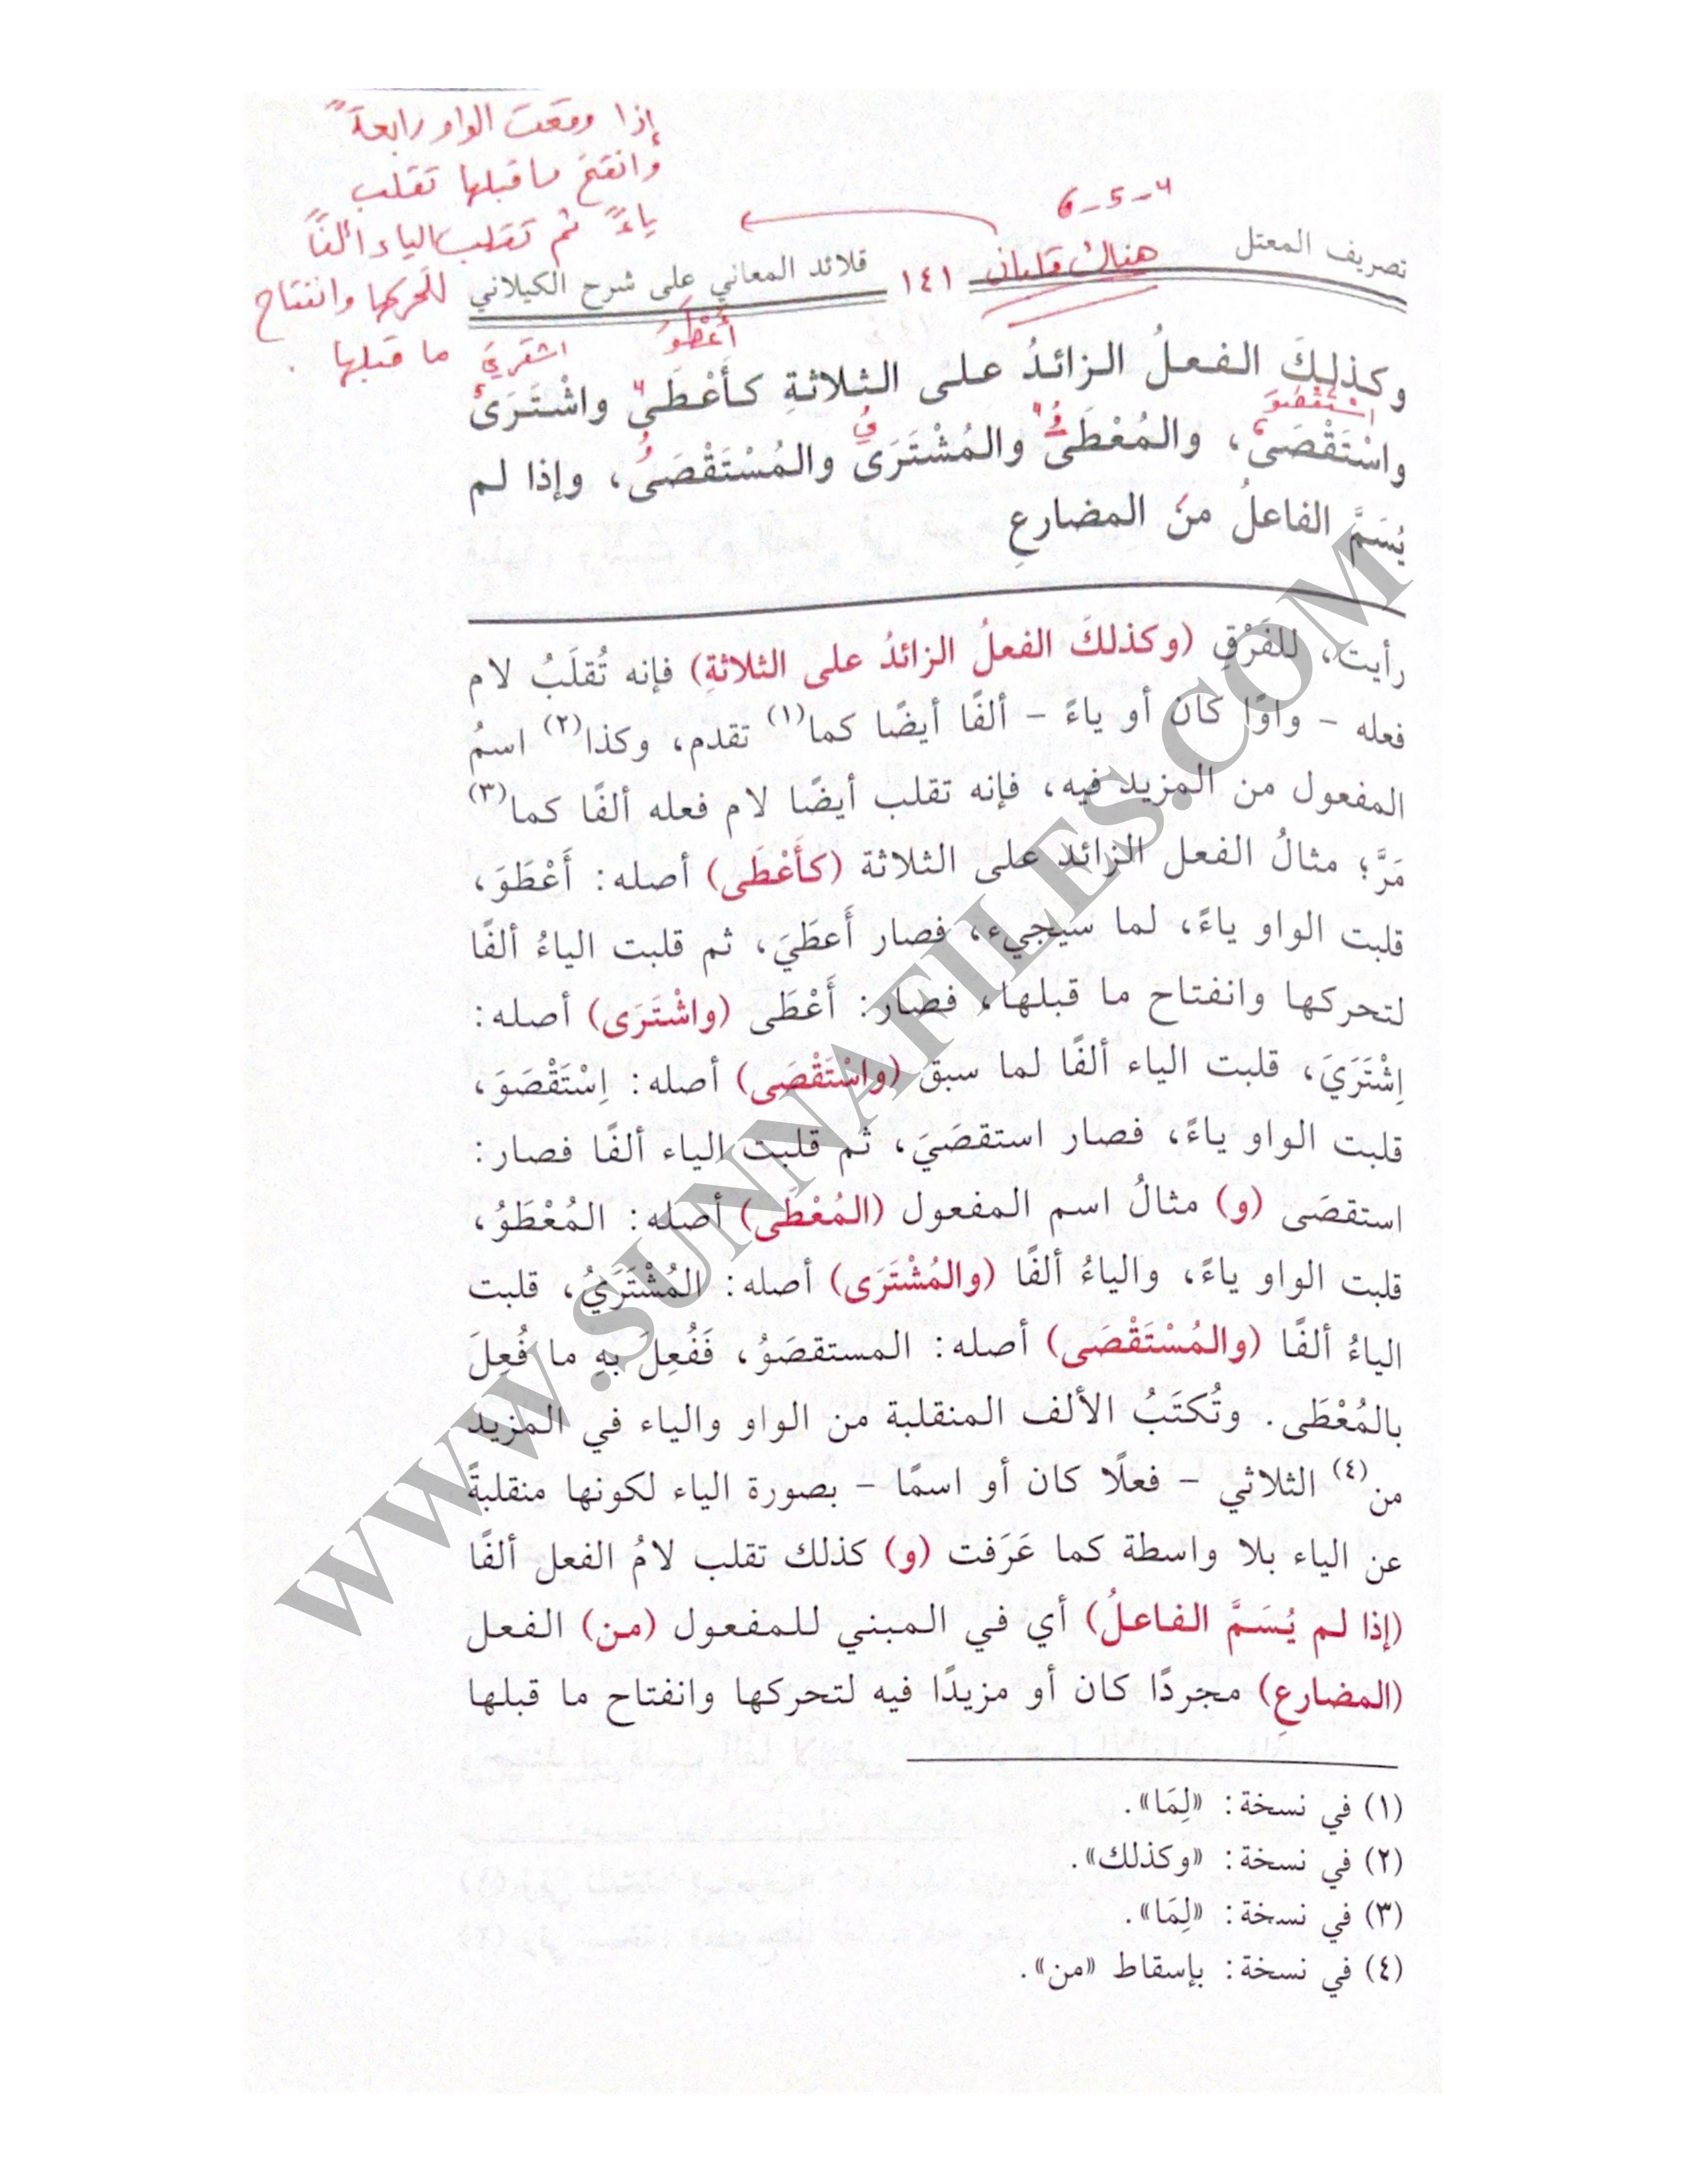 إذا وقعت الواو رابعةً
وانفتح ما قبلها تقلب
ياءً ثم تقلب الياء ألفًا
لتحركها وانفتاح
ما قبلها .
6-5-4
هناك قلبان
تصريف المعتل
١٤١
قلائد المعاني على شرح الكيلاني
أَعْطَوَ
اشتري
وكذلِكَ الفعلُ الزائدُ على الثلاثةِ كأَعْطَى واشْتَرَى
اسْتَقْصَوَ
واسْتَقْصَى، والمُعْطَى والمُشْتَرَى والمُسْتَقْصَى، وإذا لم
يُسَمَّ الفاعلُ منَ المضارعِ
رأيت، للفَرْقِ (وكذلكَ الفعلُ الزائدُ على الثلاثةِ) فإنه تُقلَبُ لام
فعله - واوًا كان أو ياءً - ألفًا أيضًا كما(١) تقدم، وكذا(٢) اسمُ
المفعول من المزيد فيه، فإنه تقلب أيضًا لام فعله ألفًا كما(٣)
مَرَّ؛ مثالُ الفعل الزائد على الثلاثة (كأَعْطَى) أصله: أَعْطَوَ،
قلبت الواو ياءً، لما سيجيء، فصار أَعطَيَ، ثم قلبت الياءُ ألفًا
لتحركها وانفتاح ما قبلها، فصار: أَعْطَى (واشْتَرَى) أصله:
اِشْتَرَيَ، قلبت الياء ألفًا لما سبق (واسْتَقْصَى) أصله: اِسْتَقْصَوَ،
قلبت الواو ياءً، فصار استقصَيَ، ثم قلبت الياء ألفًا فصار:
استقصَى (و) مثالُ اسم المفعول (المُعْطَى) أصله: المُعْطَوُ،
قلبت الواو ياءً، والياءُ ألفًا (والمُشْتَرَى) أصله: المُشْتَرَيُ، قلبت
الياءُ ألفًا (والمُسْتَقْصَى) أصله: المستقصَوُ، فَفُعِلَ بهِ ما فُعِلَ
بالمُعْطَى. وتُكتَبُ الألف المنقلبة من الواو والياء في المزيد
من(٤) الثلاثي - فعلًا كان أو اسمًا - بصورة الياء لكونها منقلبةً
عن الياء بلا واسطة كما عَرَفت (و) كذلك تقلب لامُ الفعل ألفًا
(إذا لم يُسَمَّ الفاعلُ) أي في المبني للمفعول (من) الفعل
(المضارعِ) مجردًا كان أو مزيدًا فيه لتحركها وانفتاح ما قبلها
(١) في نسخة: «لِمَا».
(٢) في نسخة: «وكذلك».
(٣) في نسخة: «لِمَا».
(٤) في نسخة: بإسقاط «من».
WWW.SUNNAFILES.COM